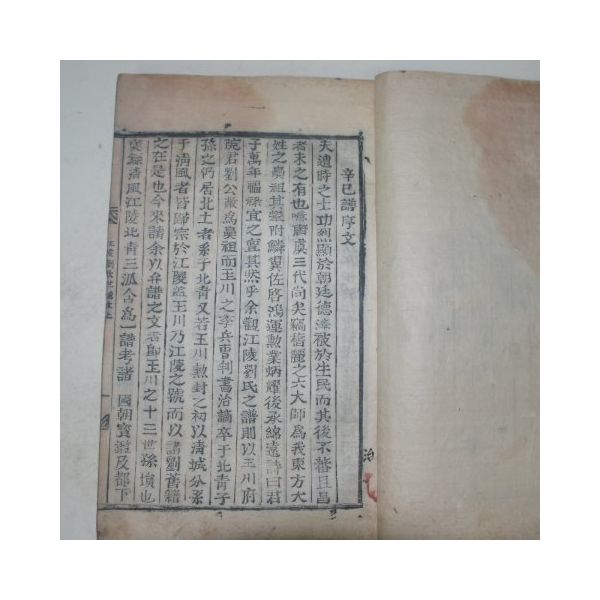 辛巳譜序文
夫遭時之士功烈顯於朝廷德澤被於生民而其後不蕃且昌
者未之有也唐虞三代尚矣竊惟麗之六大師爲我東方大
姓之鼻祖其攀附鱗翼佐啓鴻運勲業炳耀後承綿遠詩曰君
子萬年福祿宜之豈其然乎余觀江陵劉氏之譜則以玉川府
院君劉公敞爲鼻祖而玉川之季兵曹判書洽謫卒于北青子
孫之仍居北土者系于北青又若玉川勲封之初以清城分系
于清風者皆歸宗於江陵盖玉川乃江陵之號而以諸劉舊籍
之在是也今來請余以弁譜之文者卽玉川之十三世孫塤也
清風江陵北青三派合爲一譜考諸 國朝寶鑑及都下